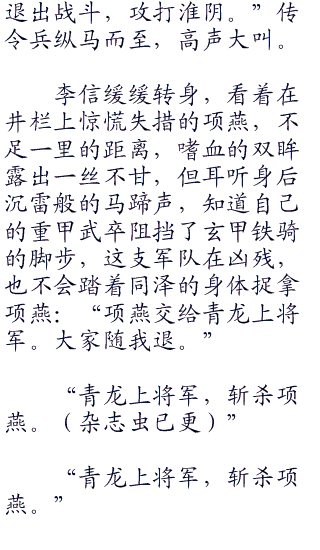 退出战斗，攻打淮阴。”传
令兵纵马而至，高声大叫。
李信缓缓转身，看着在
井栏上惊慌失措的项燕，不
足一里的距离，嗜血的双眸
露出一丝不甘，但耳听身后
沉雷般的马蹄声，知道自己
的重甲武卒阻挡了玄甲铁骑
的脚步，这支军队在凶残，
也不会踏着同泽的身体捉拿
项燕：“项燕交给青龙上将
军。大家随我退。”
“青龙上将军，斩杀项
燕。（杂志虫已更）”
“青龙上将军，斩杀项
燕。”